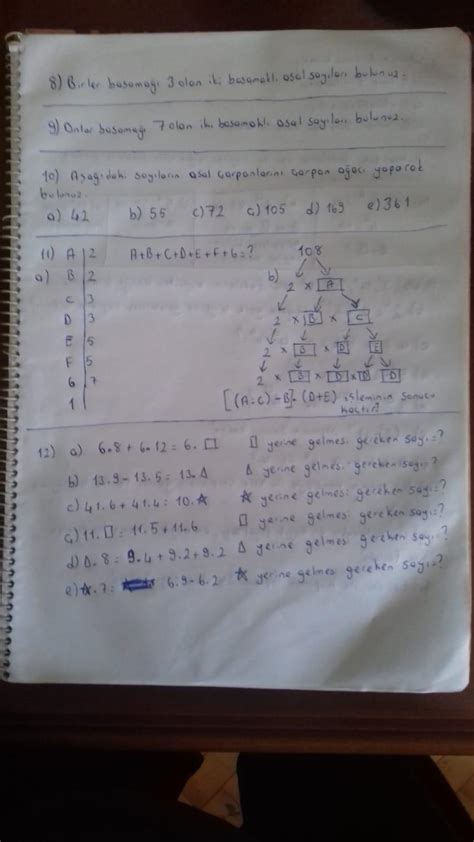 8) Birler basamağı 3 olan iki basamaklı asal sayıları bulunuz.
9) Onlar basamağı 7 olan iki basamaklı asal sayıları bulunuz.
10) Aşağıdaki sayıların asal çarpanlarını çarpan ağacı yaparak
bulunuz.
a) 42 b) 55 c) 72 ç) 105 d) 169 e) 361
11) A 2 A+B+C+D+E+F+6=? 108
a) B 2 b) 2 x A
C 3
D 3 2 x B x C
E 5
F 5 2 x B x D E
6 7
1 2 x B x D x D D
[(A-C)-B]-(D+E) işleminin sonucu
kaçtır?
12) a) 6.8 + 6.12 = 6.□ □ yerine gelmesi gereken sayı=?
b) 13.9 - 13.5 = 13.△ △ yerine gelmesi gereken sayı=?
c) 41.6 + 41.4 = 10.★ ★ yerine gelmesi gereken sayı=?
ç) 11.□ = 11.5 + 11.6 □ yerine gelmesi gereken sayı=?
d) △.8 = 9.4 + 9.2 + 9.2 △ yerine gelmesi gereken sayı=?
e) ★.7 = 6.9 - 6.2 ★ yerine gelmesi gereken sayı=?